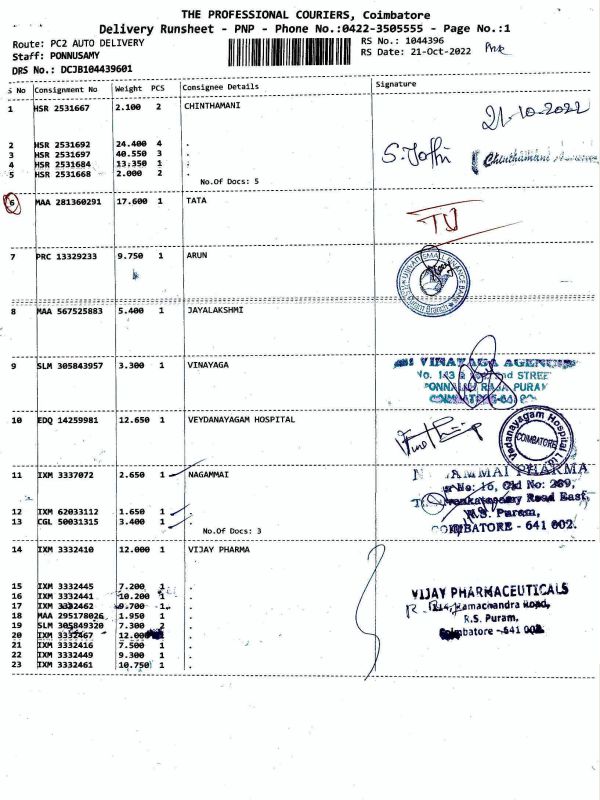 THE PROFESSIONAL COURIERS, Coimbatore
Delivery Runsheet - PNP - Phone No.:0422-3505555 - Page No.:1
Route: PC2 AUTO DELIVERY
RS No.: 1044396
Staff: PONNUSAMY
RS Date: 21-Oct-2022
DRS No.: DCJB104439601
S No Consignment No Weight PCS Consignee Details Signature
1 HSR 2531667 2.100 2 CHINTHAMANI
21-10-2022
2 HSR 2531692 24.400 4 .
3 HSR 2531697 40.550 3 .
4 HSR 2531684 13.350 1 .
5 HSR 2531668 2.000 2 .
Chinthamani
No.Of Docs: 5
6 MAA 281360291 17.600 1 TATA
7 PRC 13329233 9.750 1 ARUN
UJJIVAN SMALL FINANCE BANK
8 MAA 567525883 5.400 1 JAYALAKSHMI
9 SLM 305843957 3.300 1 VINAYAGA
VINAYAGA AGENCIES
No. 143
STREET
PONNAIAH RAJA PURAM
COIMBATORE-641
10 EDQ 14259981 12.650 1 VEYDANAYAGAM HOSPITAL
Vedanayagam Hospital Ltd
COIMBATORE
11 IXM 3337072 2.650 1 NAGAMMAI
NAGAMMAI PHARMA
No: 16, Old No: 289,
Venkatasamy Road East,
R.S. Puram,
COIMBATORE - 641 002.
12 IXM 62033112 1.650 1 .
13 CGL 50031315 3.400 1 .
No.Of Docs: 3
14 IXM 3332410 12.000 1 VIJAY PHARMA
15 IXM 3332445 7.200 1 .
16 IXM 3332441 10.200 1 .
17 IXM 3332462 9.700 1 .
18 MAA 295178026 1.950 1 .
19 SLM 305849320 7.300 2 .
20 IXM 3332467 12.000 .
21 IXM 3332416 7.500 1 .
22 IXM 3332449 9.300 1 .
23 IXM 3332461 10.750 1 .
VIJAY PHARMACEUTICALS
Ramachandra Road,
R.S. Puram,
Coimbatore - 641 002.